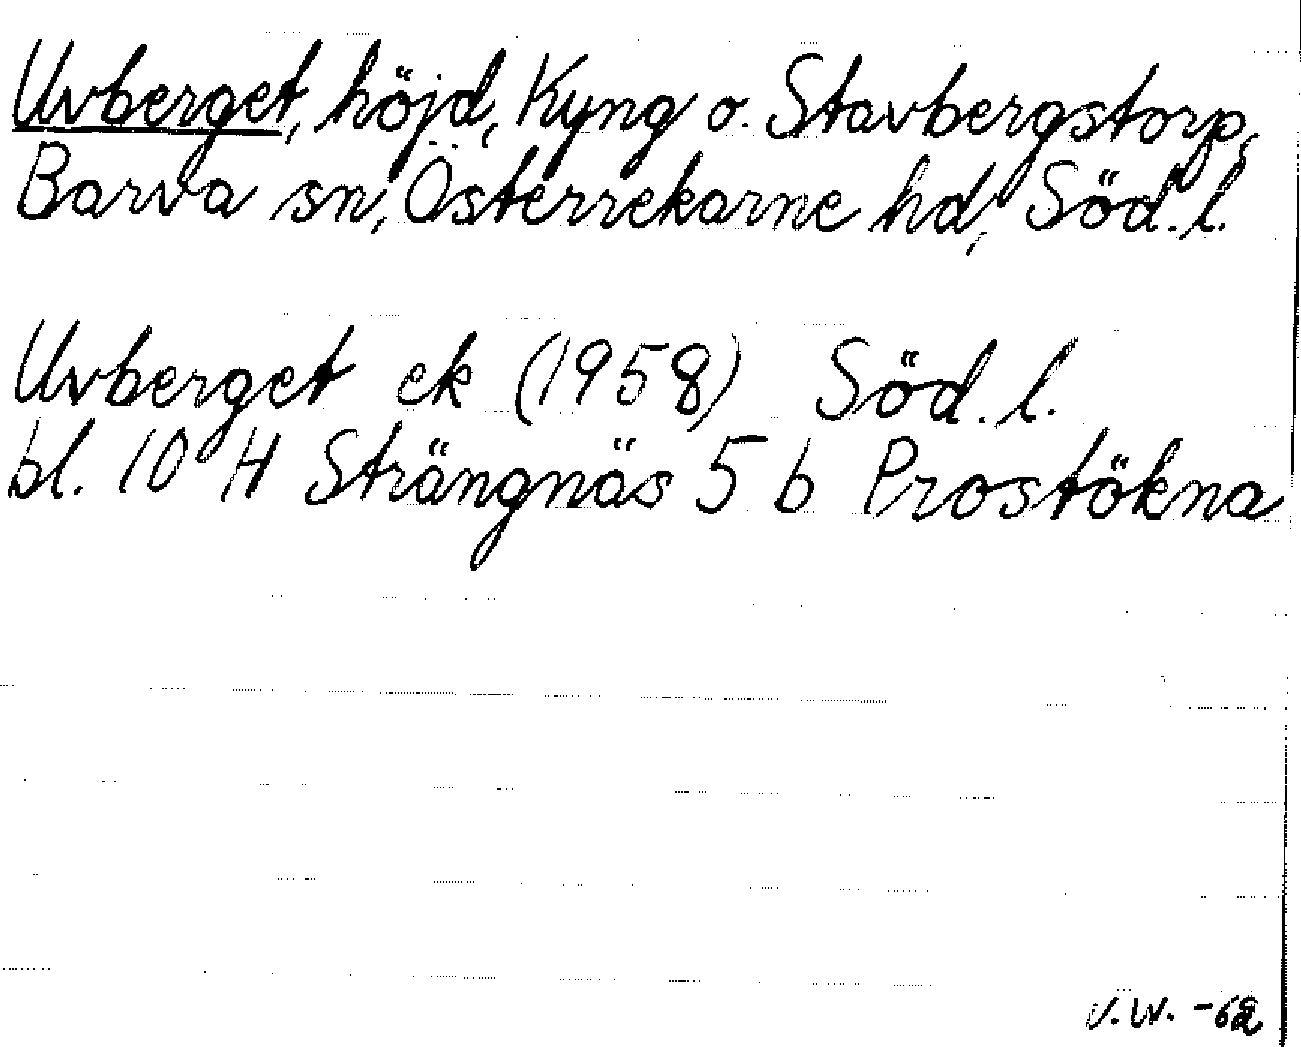 Uvberget, höjd, Kyng o. Stavbergstorp,
Barva sn, Österrekarne hd, Söd. l.
Uvberget ek (1958) Söd. l.
bl. 10 H Strängnäs 5 b Prostökna
V. W. -62